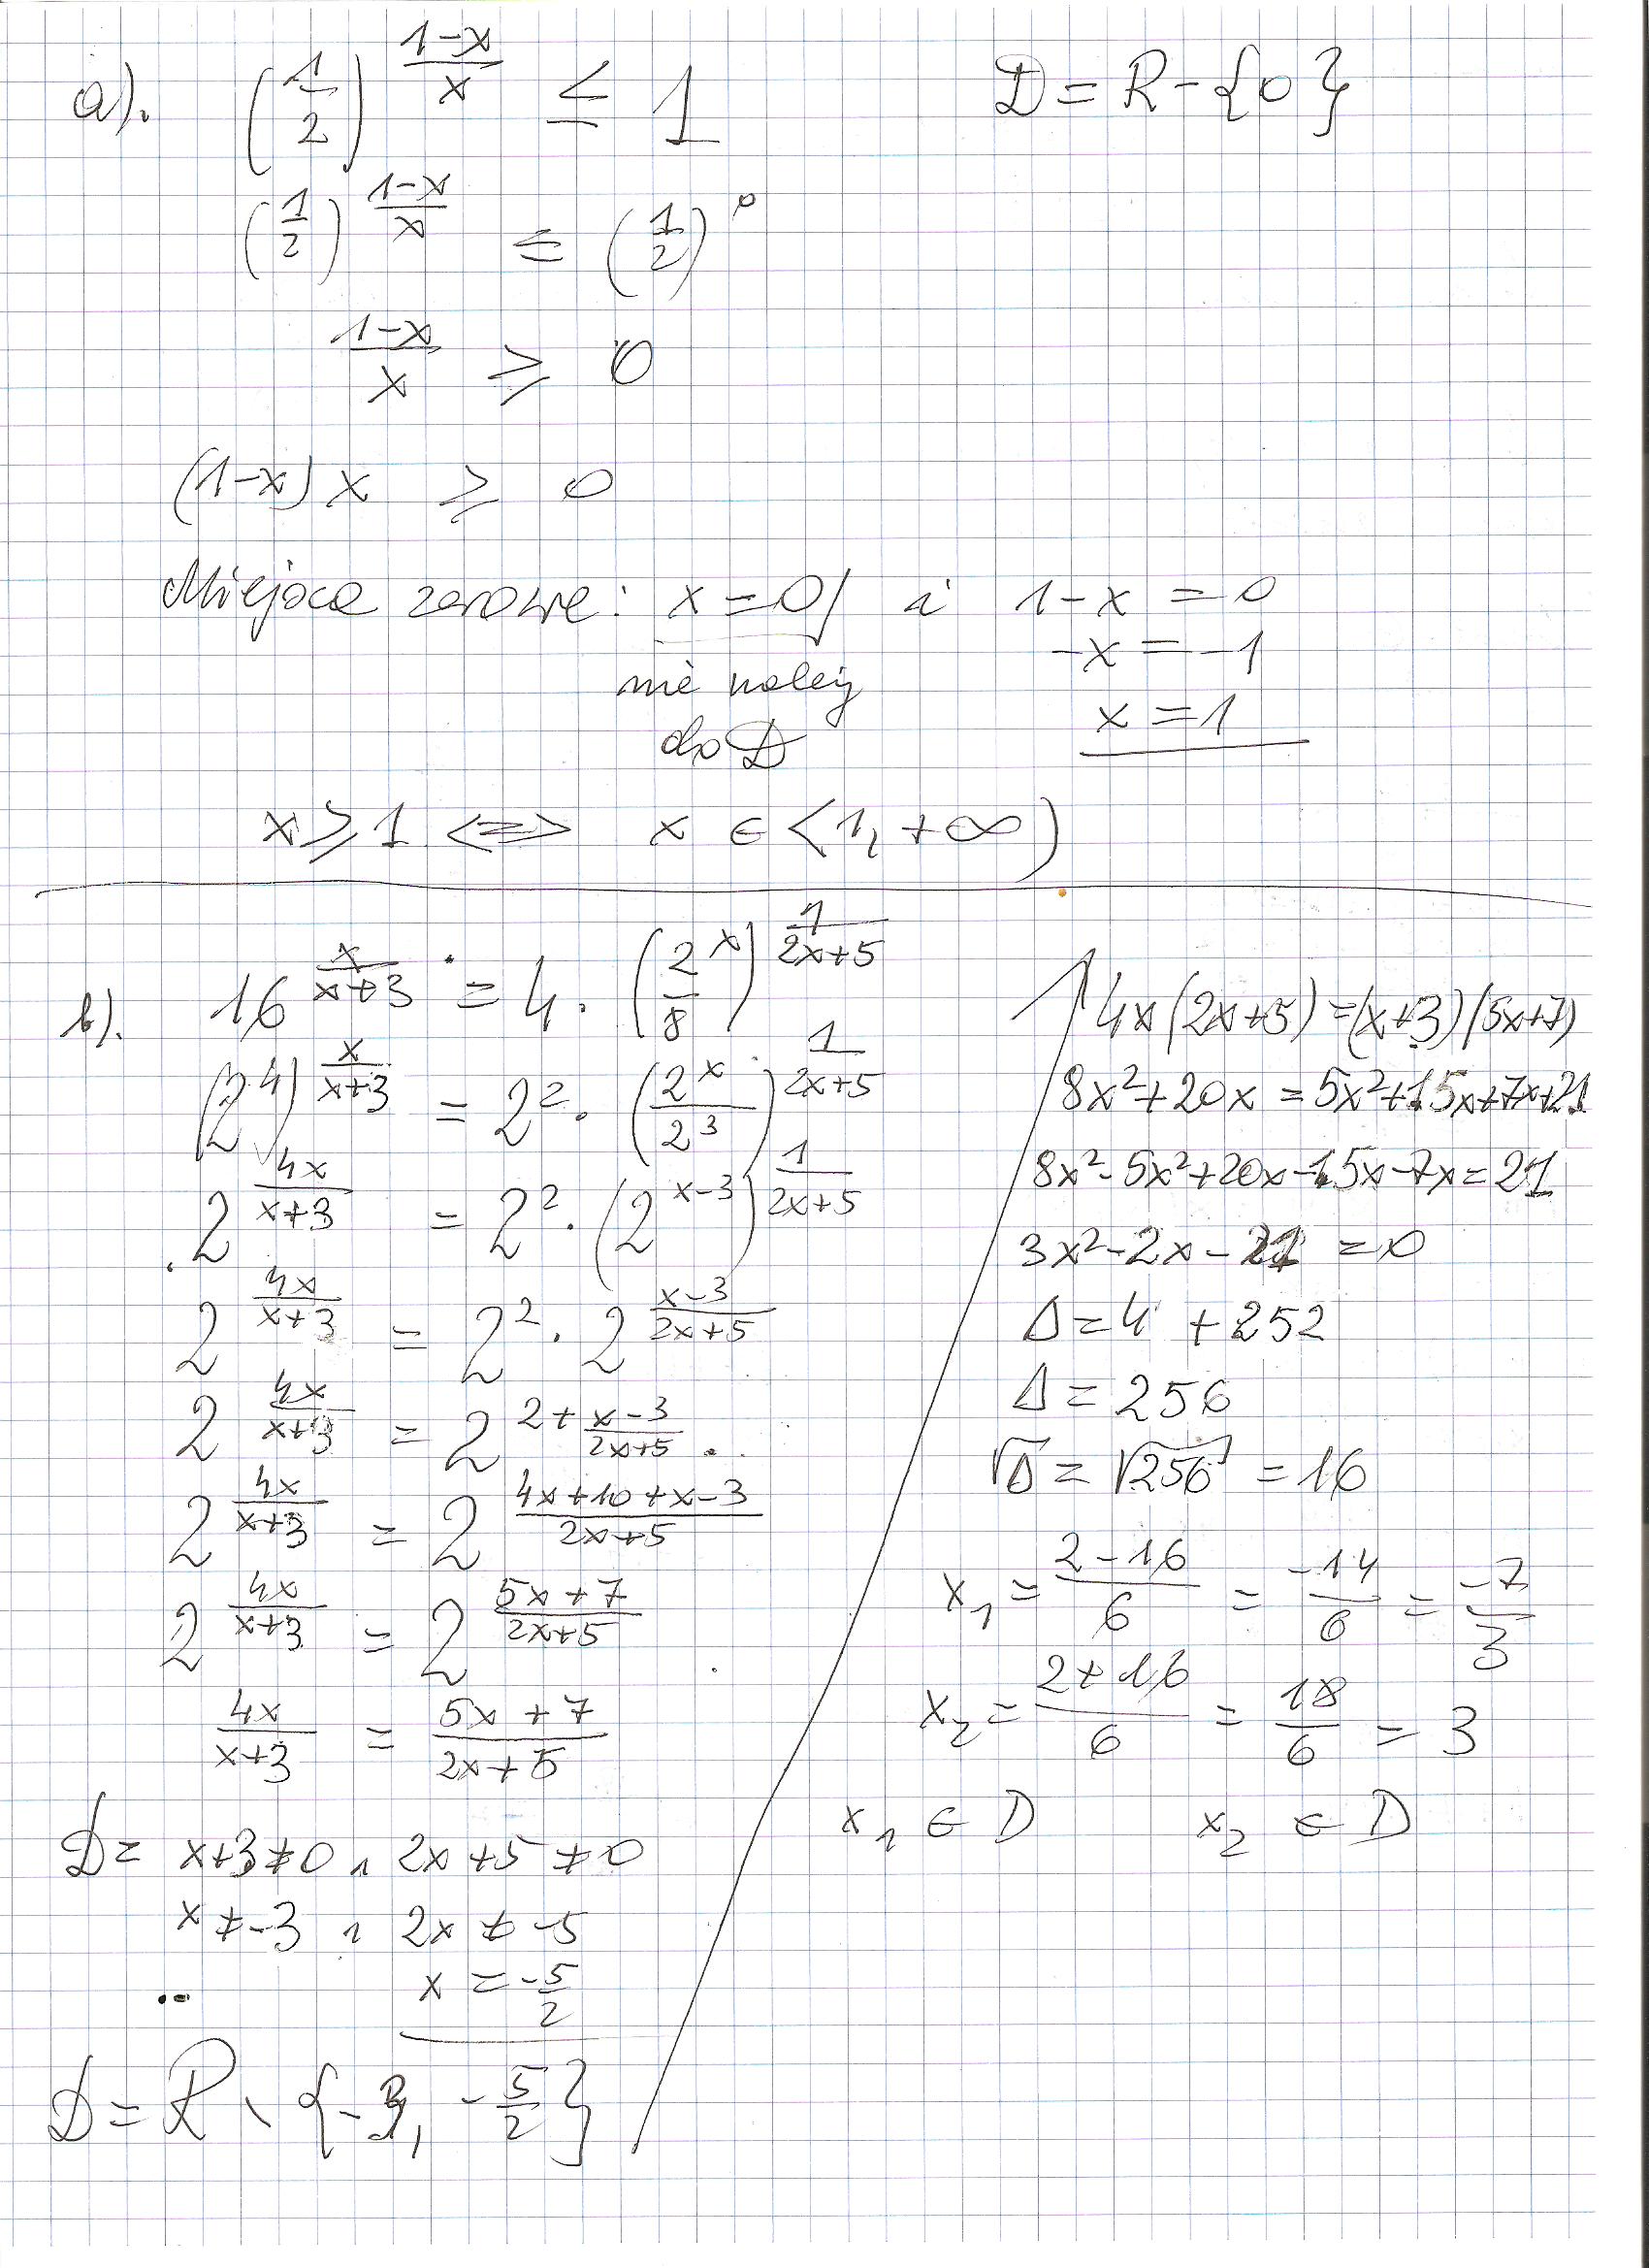 a). (1/2)^((1-x)/x) ≤ 1 D = R - {0}
(1/2)^((1-x)/x) ≤ (1/2)^0
(1-x)/x ≥ 0
(1-x) x ≥ 0
Miejsca zerowe: x = 0 / i 1-x = 0
-x = -1
nie należy
x = 1
do D
x ≥ 1 <=> x ∈ <1, +∞)
b). 16^(x/(x+3)) = 4 · (2^x/8)^(1/(2x+5))
(2^4)^(x/(x+3)) = 2^2 · (2^x/2^3)^(1/(2x+5))
2^(4x/(x+3)) = 2^2 · (2^(x-3))^(1/(2x+5))
2^(4x/(x+3)) = 2^2 · 2^((x-3)/(2x+5))
2^(4x/(x+3)) = 2^(2 + (x-3)/(2x+5))
2^(4x/(x+3)) = 2^((4x+10+x-3)/(2x+5))
2^(4x/(x+3)) = 2^((5x+7)/(2x+5))
4x/(x+3) = (5x+7)/(2x+5)
D = x+3 ≠ 0 , 2x+5 ≠ 0
x ≠ -3 , 2x ≠ -5
x = -5/2
D = R \ {-3, -5/2}
4x(2x+5) = (x+3)(5x+7)
8x² + 20x = 5x² + 15x + 7x + 21
8x² - 5x² + 20x - 15x - 7x = 21
3x² - 2x - 21 = 0
Δ = 4 + 252
Δ = 256
√Δ = √256 = 16
x₁ = (2-16)/6 = -14/6 = -7/3
x₂ = (2+16)/6 = 18/6 = 3
x₁ ∈ D x₂ ∈ D